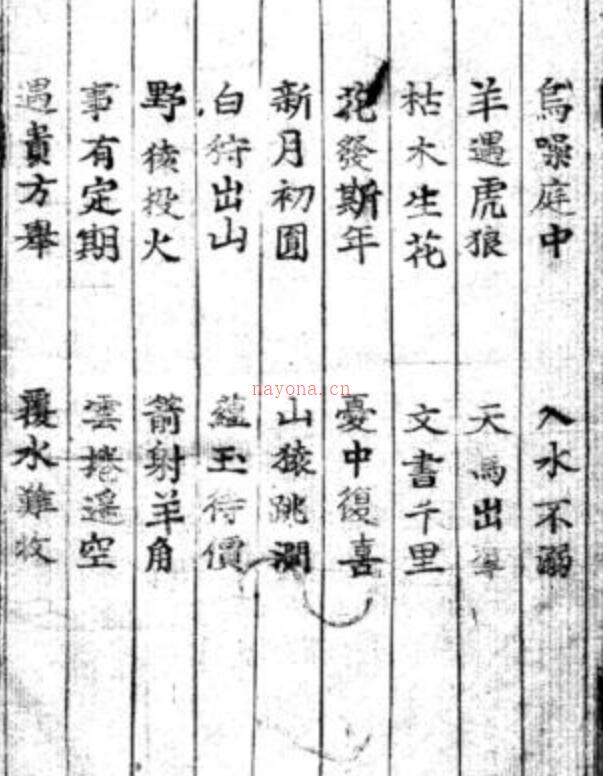 烏噪庭中 入水不溺
羊遇虎狼 天馬出
枯木生花 文書千里
發斯年 憂中復喜
新月初圓 山猿跳澗
白狩出山 蘊玉待價
野猿投火 箭射羊角
事有定期 雲捲遥空
遇貴方舉 覆水難收
nayona.cn